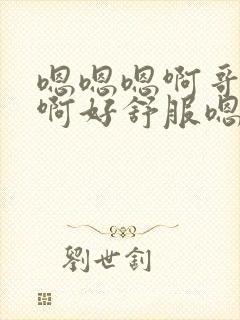 嗯嗯嗯啊哥
啊好舒服嗯
劉世釗